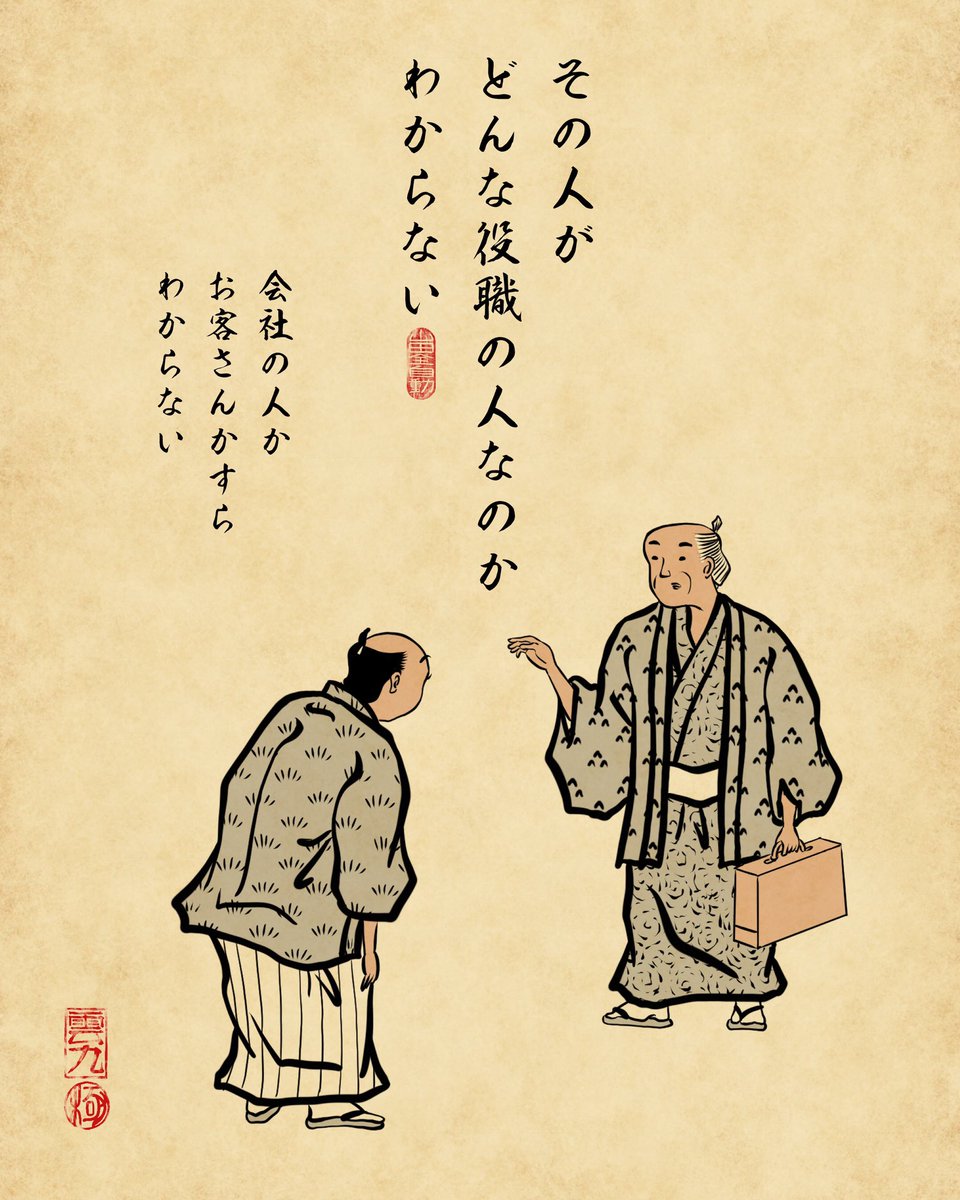 その人が
どんな役職の人なのか
わからない
会社の人か
お客さんかすら
わからない